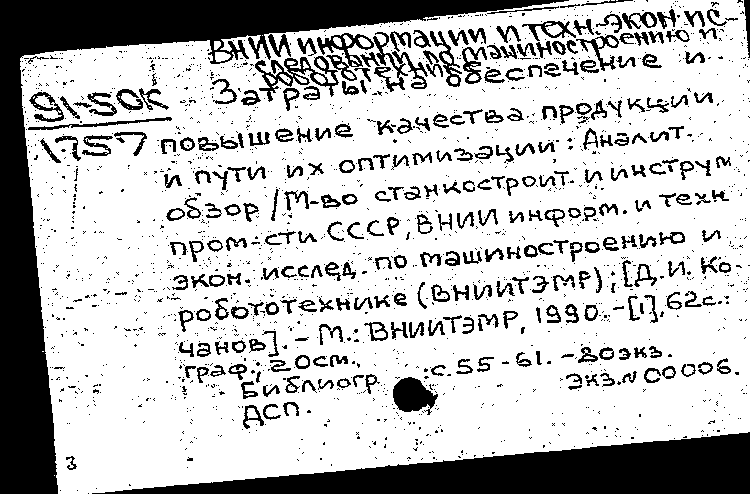 ВНИИ информации и техн.-экон. ис-
следований по машиностроению и
робототехнике
Затраты на обеспечение и
91-5ОК
1757
повышение качества продукции
и пути их оптимизации: Аналит.
обзор / М-во станкостроит. и инструм
пром-сти СССР, ВНИИ информ. и техн
экон. исслед. по машиностроению и
робототехнике (ВНИИТЭМР); [Д.И. Ко-
чанов]. - М.: ВНИИТЭМР, 1990. - [1], 62с.:
граф.; 20см.
Библиогр.: с. 55-61. - 80экз.
ДСП. Экз. N 00006.
3